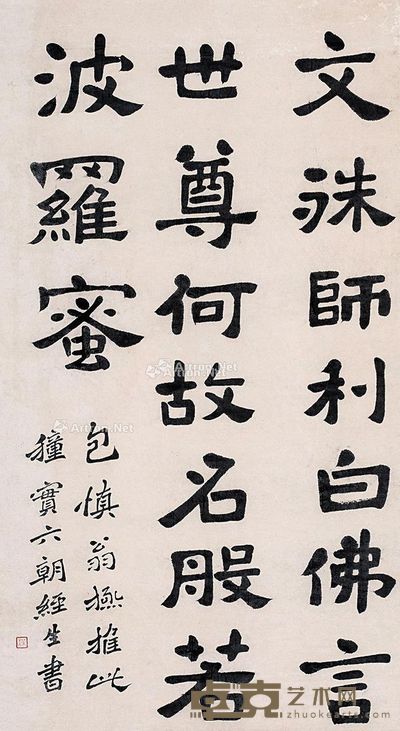 文殊師利白佛言
世尊何故名般若
波羅蜜
包慎翁極推此
種實六朝經生書
Artron.Net
Artron.Net
Artron.Net
卓克艺术网
www.zhuokearts.com